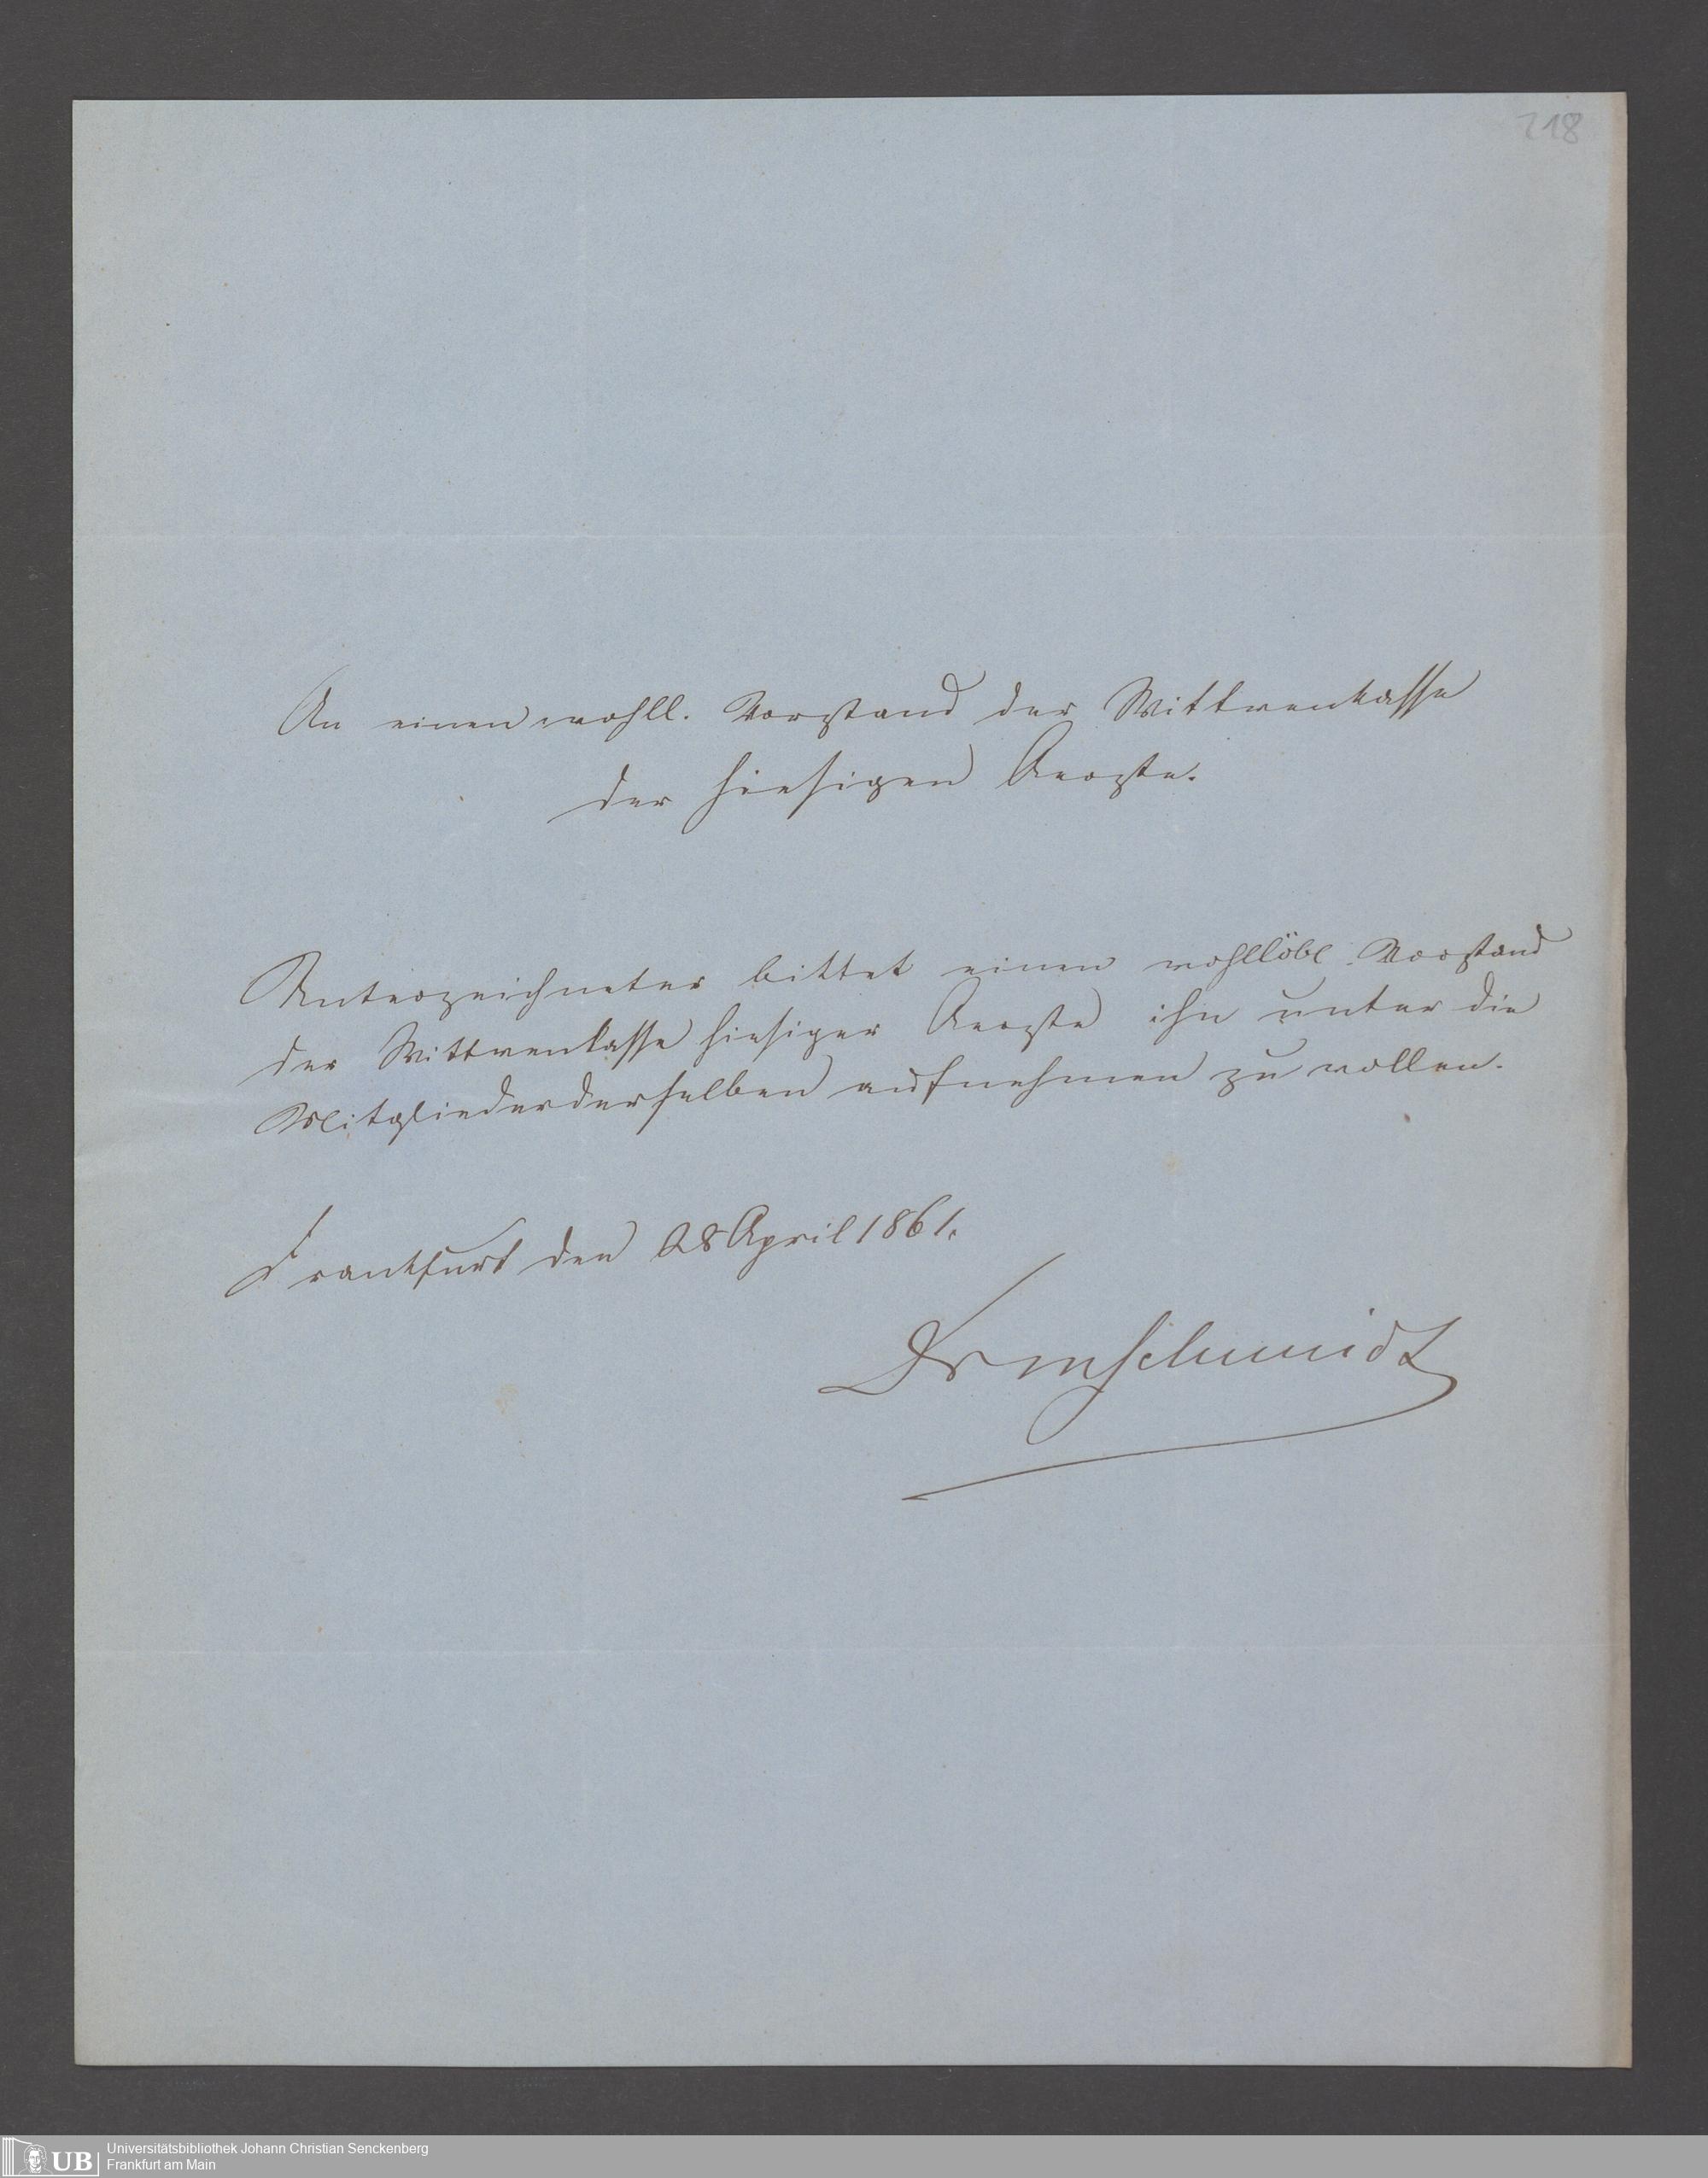 218
An einen wohll. Vorstand der Wittwenkasse
der hiesigen Aerzte.
Unterzeichneter bittet einen wohllöbl. Vorstand
der Wittwenkasse hiesiger Aerzte ihn unter die
Mitglieder derselben aufnehmen zu wollen.
Frankfurt den 28 April 1861.
Dr m Schmidt
UB
Universitätsbibliothek Johann Christian Senckenberg
Frankfurt am Main